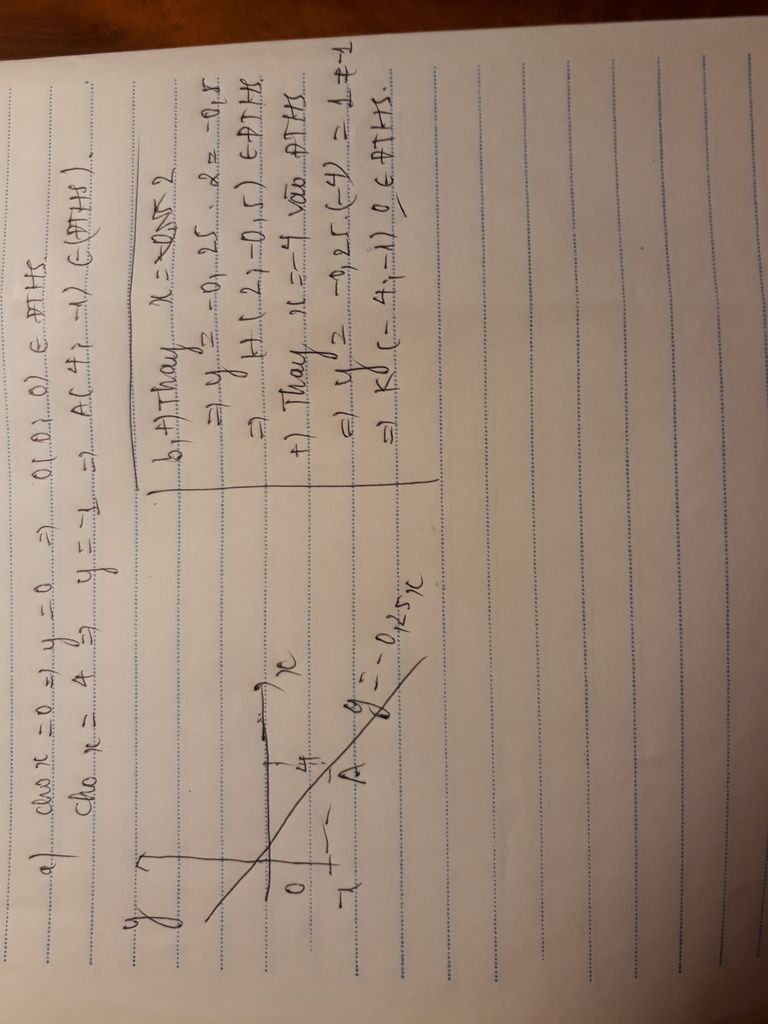 a) cho x = 0 => y = 0 => O(0; 0) ∈ ĐTHS.
cho x = 4 => y = -1 => A(4; -1) ∈ (ĐTHS).
y
x
0
4
-1
A
y = -0,25x
b, +) Thay x = 2
=> y = -0,25 . 2 = -0,5
=> H(2; -0,5) ∈ ĐTHS.
+) Thay x = -4 vào ĐTHS
=> y = -0,25.(-4) = 1 ≠ -1
=> K(-4; -1) ∉ ĐTHS.